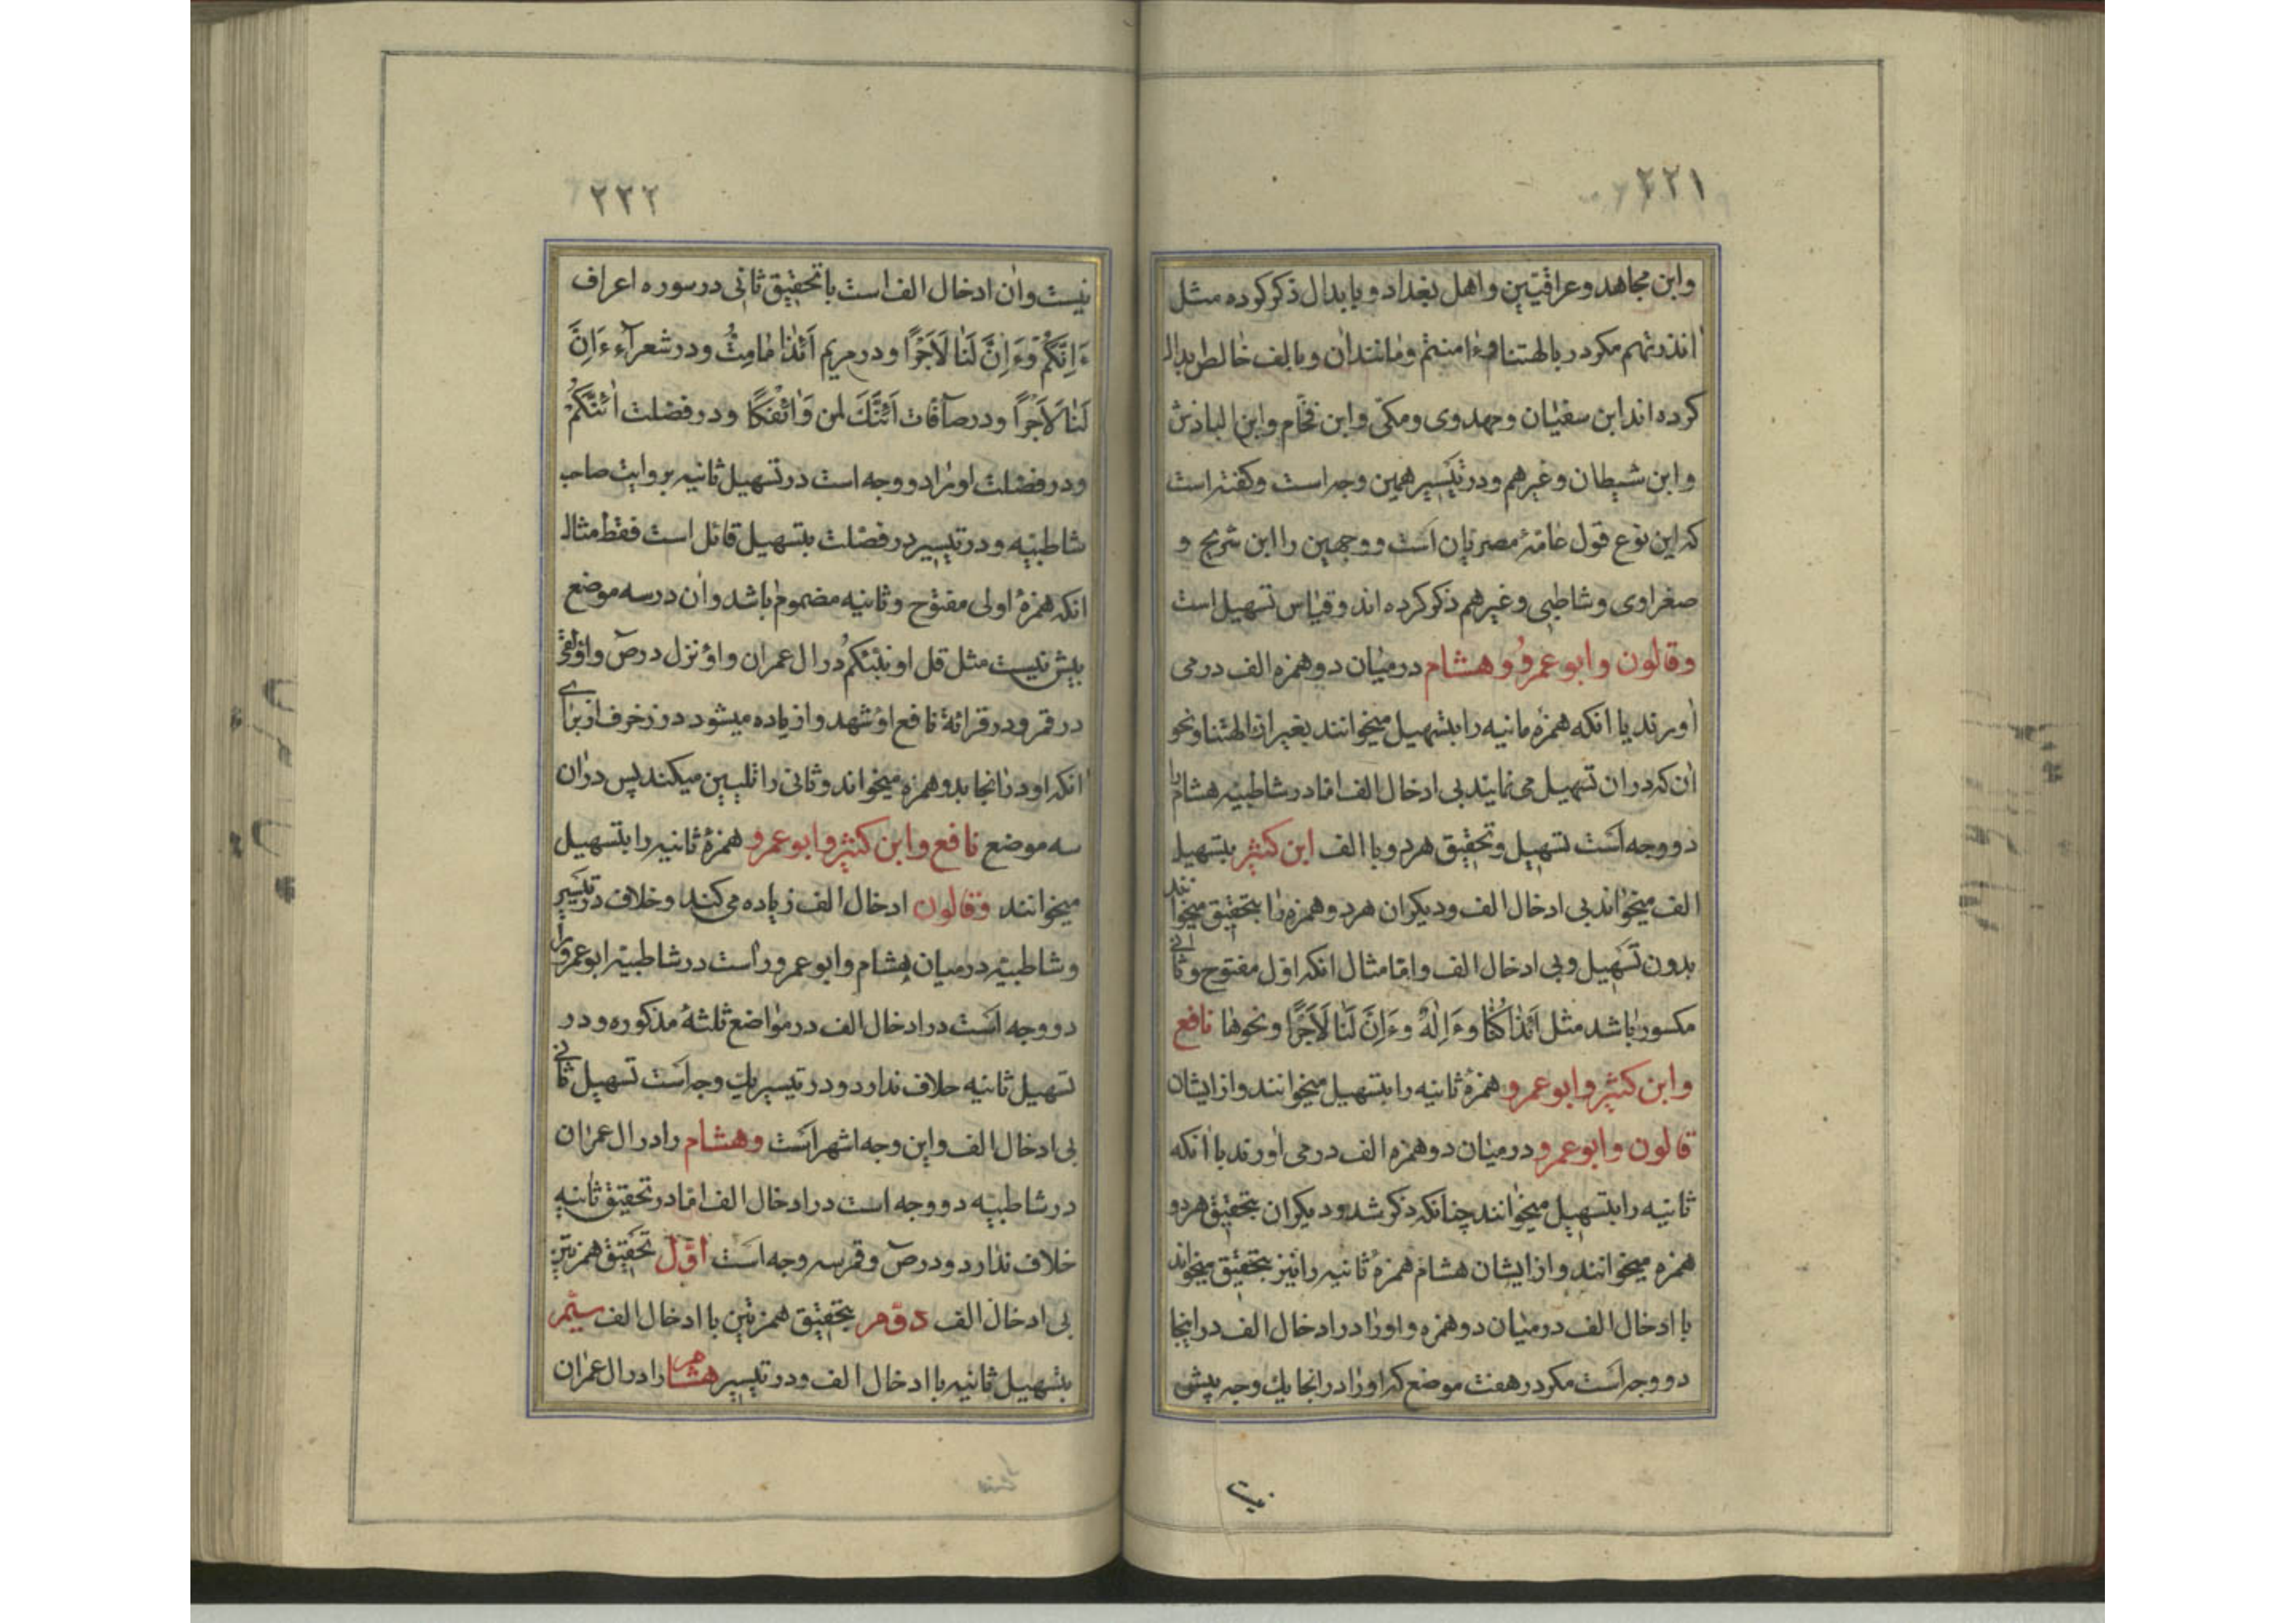 ٢٢١
وابن مجاهد وعراقیّین واهل بغداد و یا بدال ذکر کرده مثل
ءانذرتهم مکر در ءالهتنا وءامنتم ومانندان وبالف خالص بدال
کرده اند ابن سفیان ومهدوی ومکّی وابن فحّام وابن الباذش
وابن شیطان وغیرهم ودر تیسیر همین وجه است وکفته است
که این نوع قول عامّهٔ مصریان است ووجهین را ابن شریح و
صفراوی وشاطبی وغیرهم ذکر کرده اند وقیاس تسهیل است
وقالون وابو عمرو وهشام درمیان دو همزه الف در می
اورند یا انکه همزه مانیه را بتسهیل میخوانند بغیر از ءالهتنا ونحو
ان که دران تسهیل می نمایند بی ادخال الف امّا در شاطبیه هشام را
دو وجه است تسهیل وتحقیق هر دو با الف ابن کثیر بتسهیل
الف میخواند بی ادخال الف ودیکران هر دو همزه را بتحقیق میخوانند
بدون تسهیل وبی ادخال الف وامّا مثال انکه اوّل مفتوح وثانی
مکسور باشد مثل ائذا کنّا وءاله وءانّ لنا لاجرًا ونحوها نافع
وابن کثیر وابو عمرو همزهٔ ثانیه را بتسهیل میخوانند واز ایشان
قالون وابو عمرو درمیان دو همزه الف در می اورند با انکه
ثانیه را بتسهیل میخوانند چنانکه ذکر شد ودیکران بتحقیق هر دو
همزه میخوانند واز ایشان هشام همزهٔ ثانیه را نیز بتحقیق میخواند
با ادخال الف درمیان دو همزه واورا در ادخال الف در اینجا
دو وجه است مکر در هفت موضع که اورا در انجا یک وجه بیش
٢٢٢
نیست وان ادخال الف است با تحقیق ثانی در سوره اعراف
ءَاِنَّکُمْ وءَاِنَّ لَنَا لَاَجْرًا ودر مریم اَئذا مامتُّ ودر شعرآء ءَاِنَّ
لَنَا لَاَجْرًا ودر صآفّات اَئنَّکَ لمن وَائفکًا ودر فصّلت ائنّکُمْ
ودر فصّلت اورا دو وجه است در تسهیل ثانیه بروایت صاحب
شاطبیّه ودر تیسیر در فصّلت بتسهیل قائل است فقط مثال
انکه همزهٔ اولی مفتوح وثانیه مضموم باشد وان در سه موضع
بیش نیست مثل قل اونبّئکُم در ال عمران واؤنزل در صٓ واؤلقی
در قمر ودر قرائة نافع اؤشهد وا زیاده میشود در زخرف از برای
انکه او در انجا بدو همزه میخواند وثانی را تلیین میکند پس دران
سه موضع نافع وابن کثیر وابو عمرو همزهٔ ثانیه را بتسهیل
میخوانند وقالون ادخال الف زیاده می کند وخلاف در تیسیر
وشاطبیّه درمیان هشام وابو عمرو است در شاطبیّه ابو عمرو را
دو وجه است در ادخال الف در مواضع ثلثهٔ مذکوره ودر
تسهیل ثانیه خلاف ندارد ودر تیسیر یک وجه است تسهیل ثانی
بی ادخال الف واین وجه اشهر است وهشام را در ال عمران
در شاطبیّه دو وجه است در ادخال الف امّا در تحقیق ثانیه
خلاف ندارد ودر صٓ وقمر سه وجه است اوّل تحقیق همزتین
بی ادخال الف دوّم بتحقیق همزتین با ادخال الف سیّم
بتسهیل ثانیه با ادخال الف ودر تیسیر هشام را در ال عمران